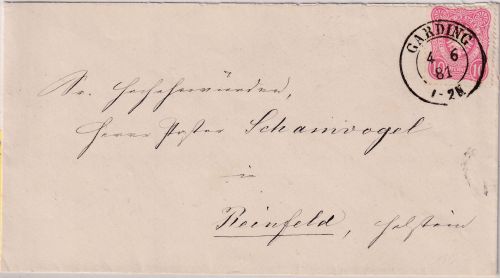 GARDING
4 6
81
1-2N.
10 10
Sr. Hochehrwürden,
Herrn Pastor Schamvogel
in
Reinfeld, Holstein